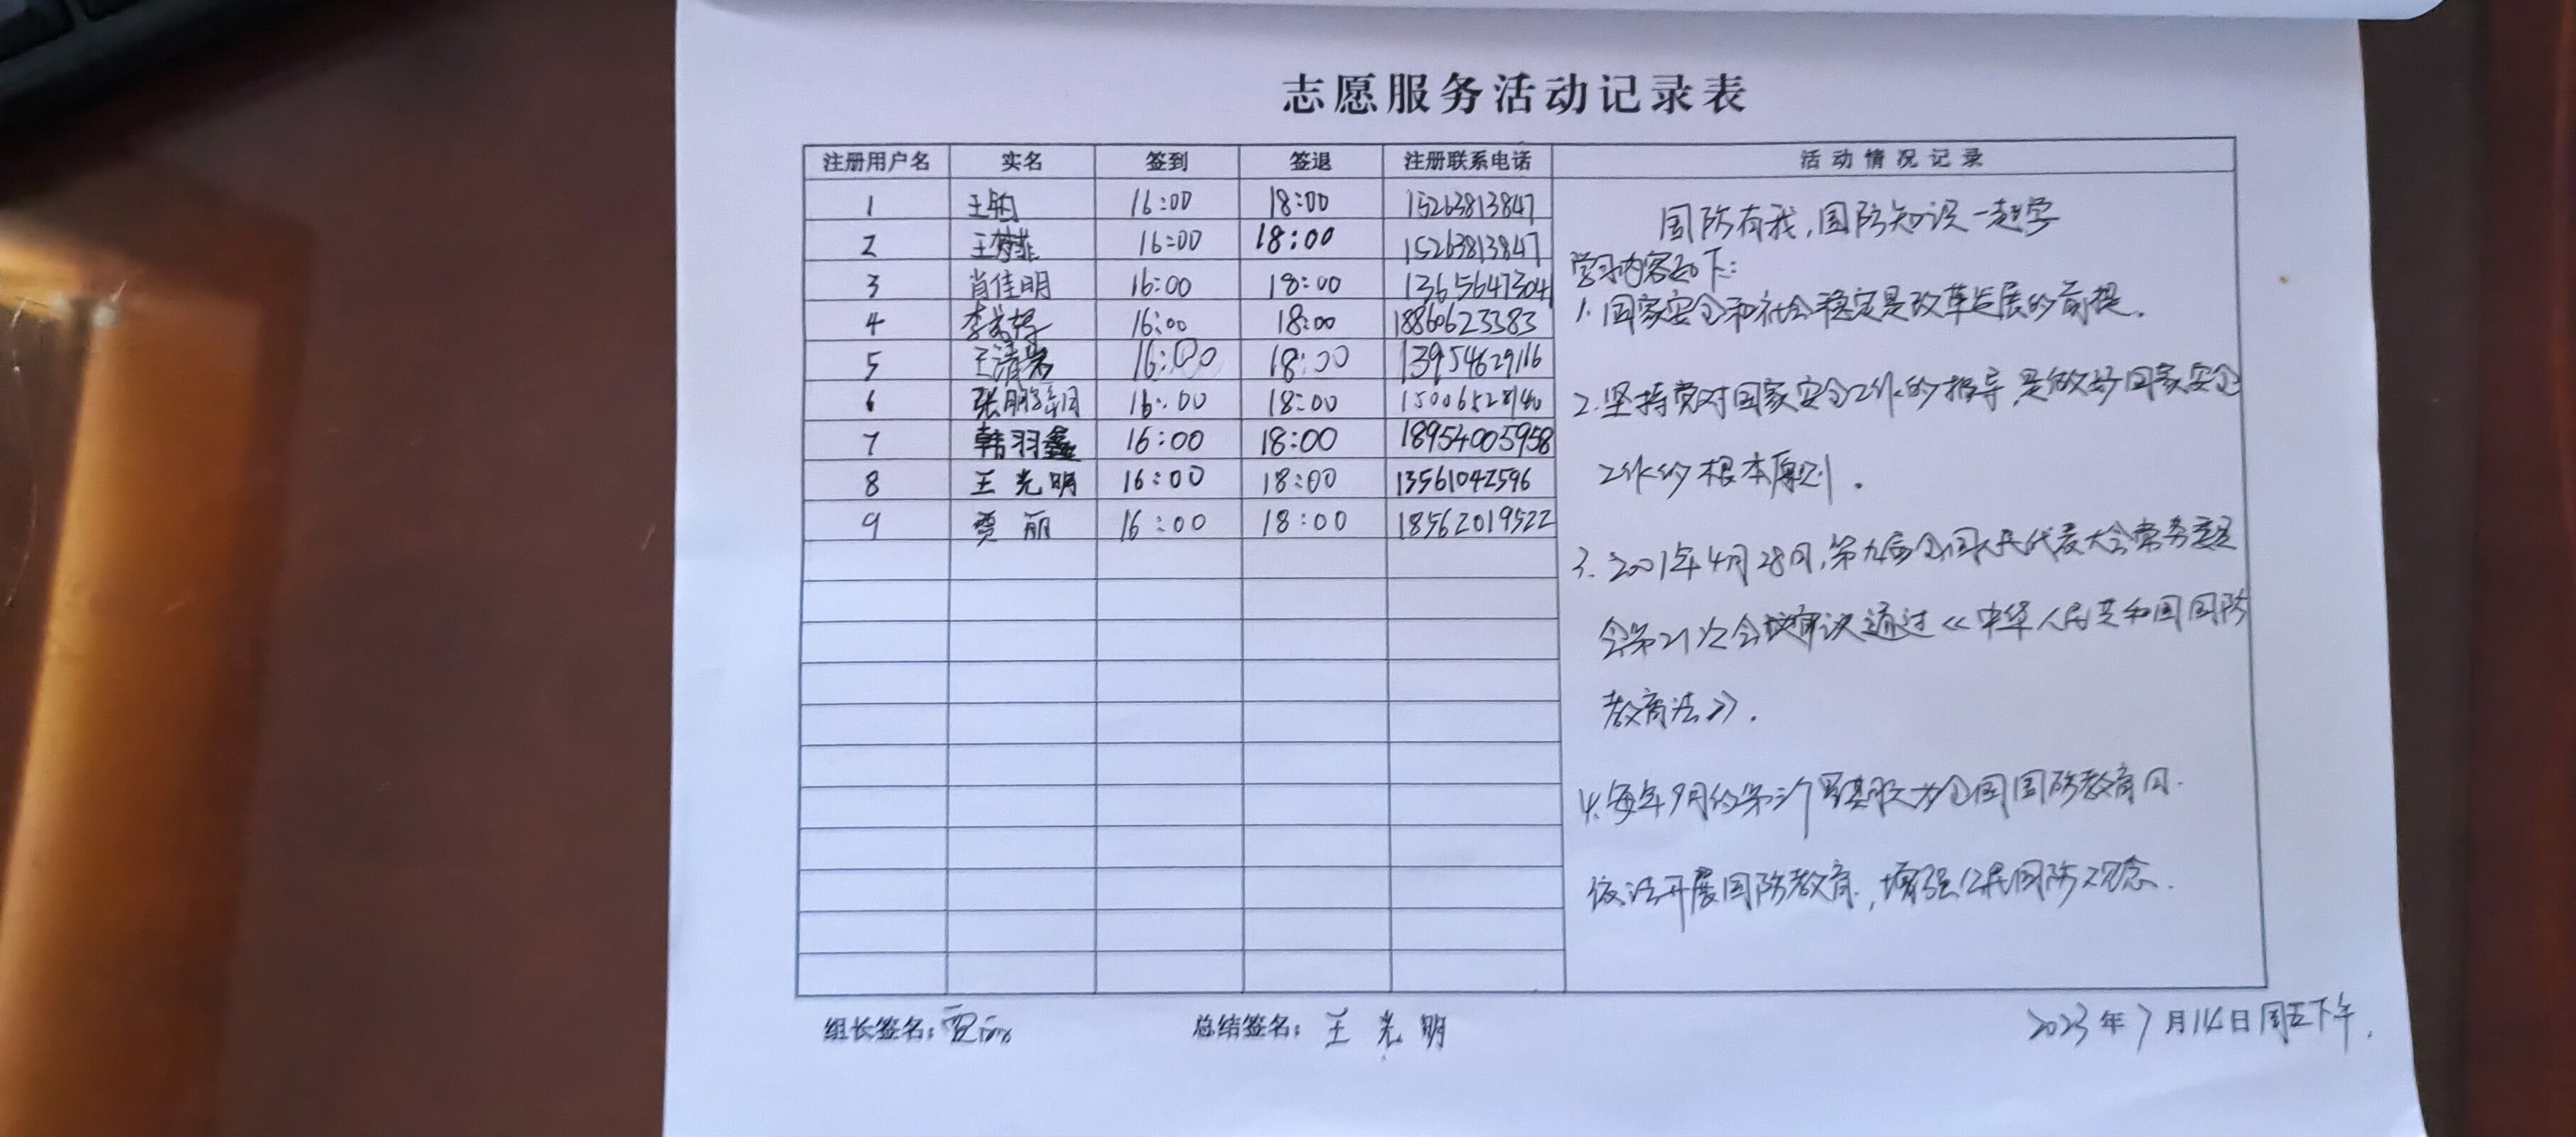 志愿服务活动记录表
注册用户名 实名 签到 签退 注册联系电话 活动情况记录
1 王钧 16:00 18:00 15263813847
2 王梦菲 16:00 18:00 15263813847
3 肖佳明 16:00 18:00 13656473041
4 李 16:00 18:00 18860623383
5 王清 16:00 18:00 13954629116
6 张鹏 16:00 18:00 15006528140
7 韩羽鑫 16:00 18:00 18954005958
8 王光明 16:00 18:00 13561042596
9 贾丽 16:00 18:00 18562019522
国防有我,国防知识一起学
学习内容如下:
1.国家安全和社会稳定是改革发展的前提.
2.坚持党对国家安全工作的领导,是做好国家安全
工作的根本原则.
3.2001年4月28日,第九届全国人民代表大会常务委员
会第21次会议审议通过《中华人民共和国国防
教育法》.
4.每年9月的第三个星期六为全国国防教育日.
依法开展国防教育,增强公民国防观念.
组长签名:贾丽 总结签名:王光明 2023年7月14日周五下午.